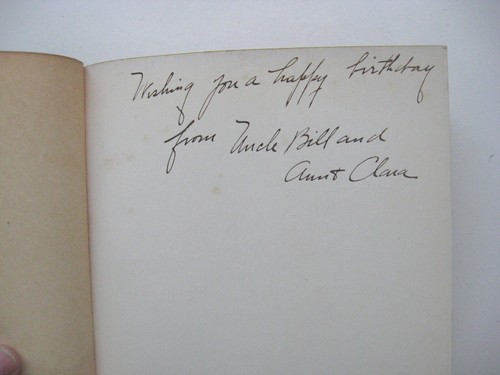 Wishing you a happy birthday
from Uncle Bill and
Aunt Clara